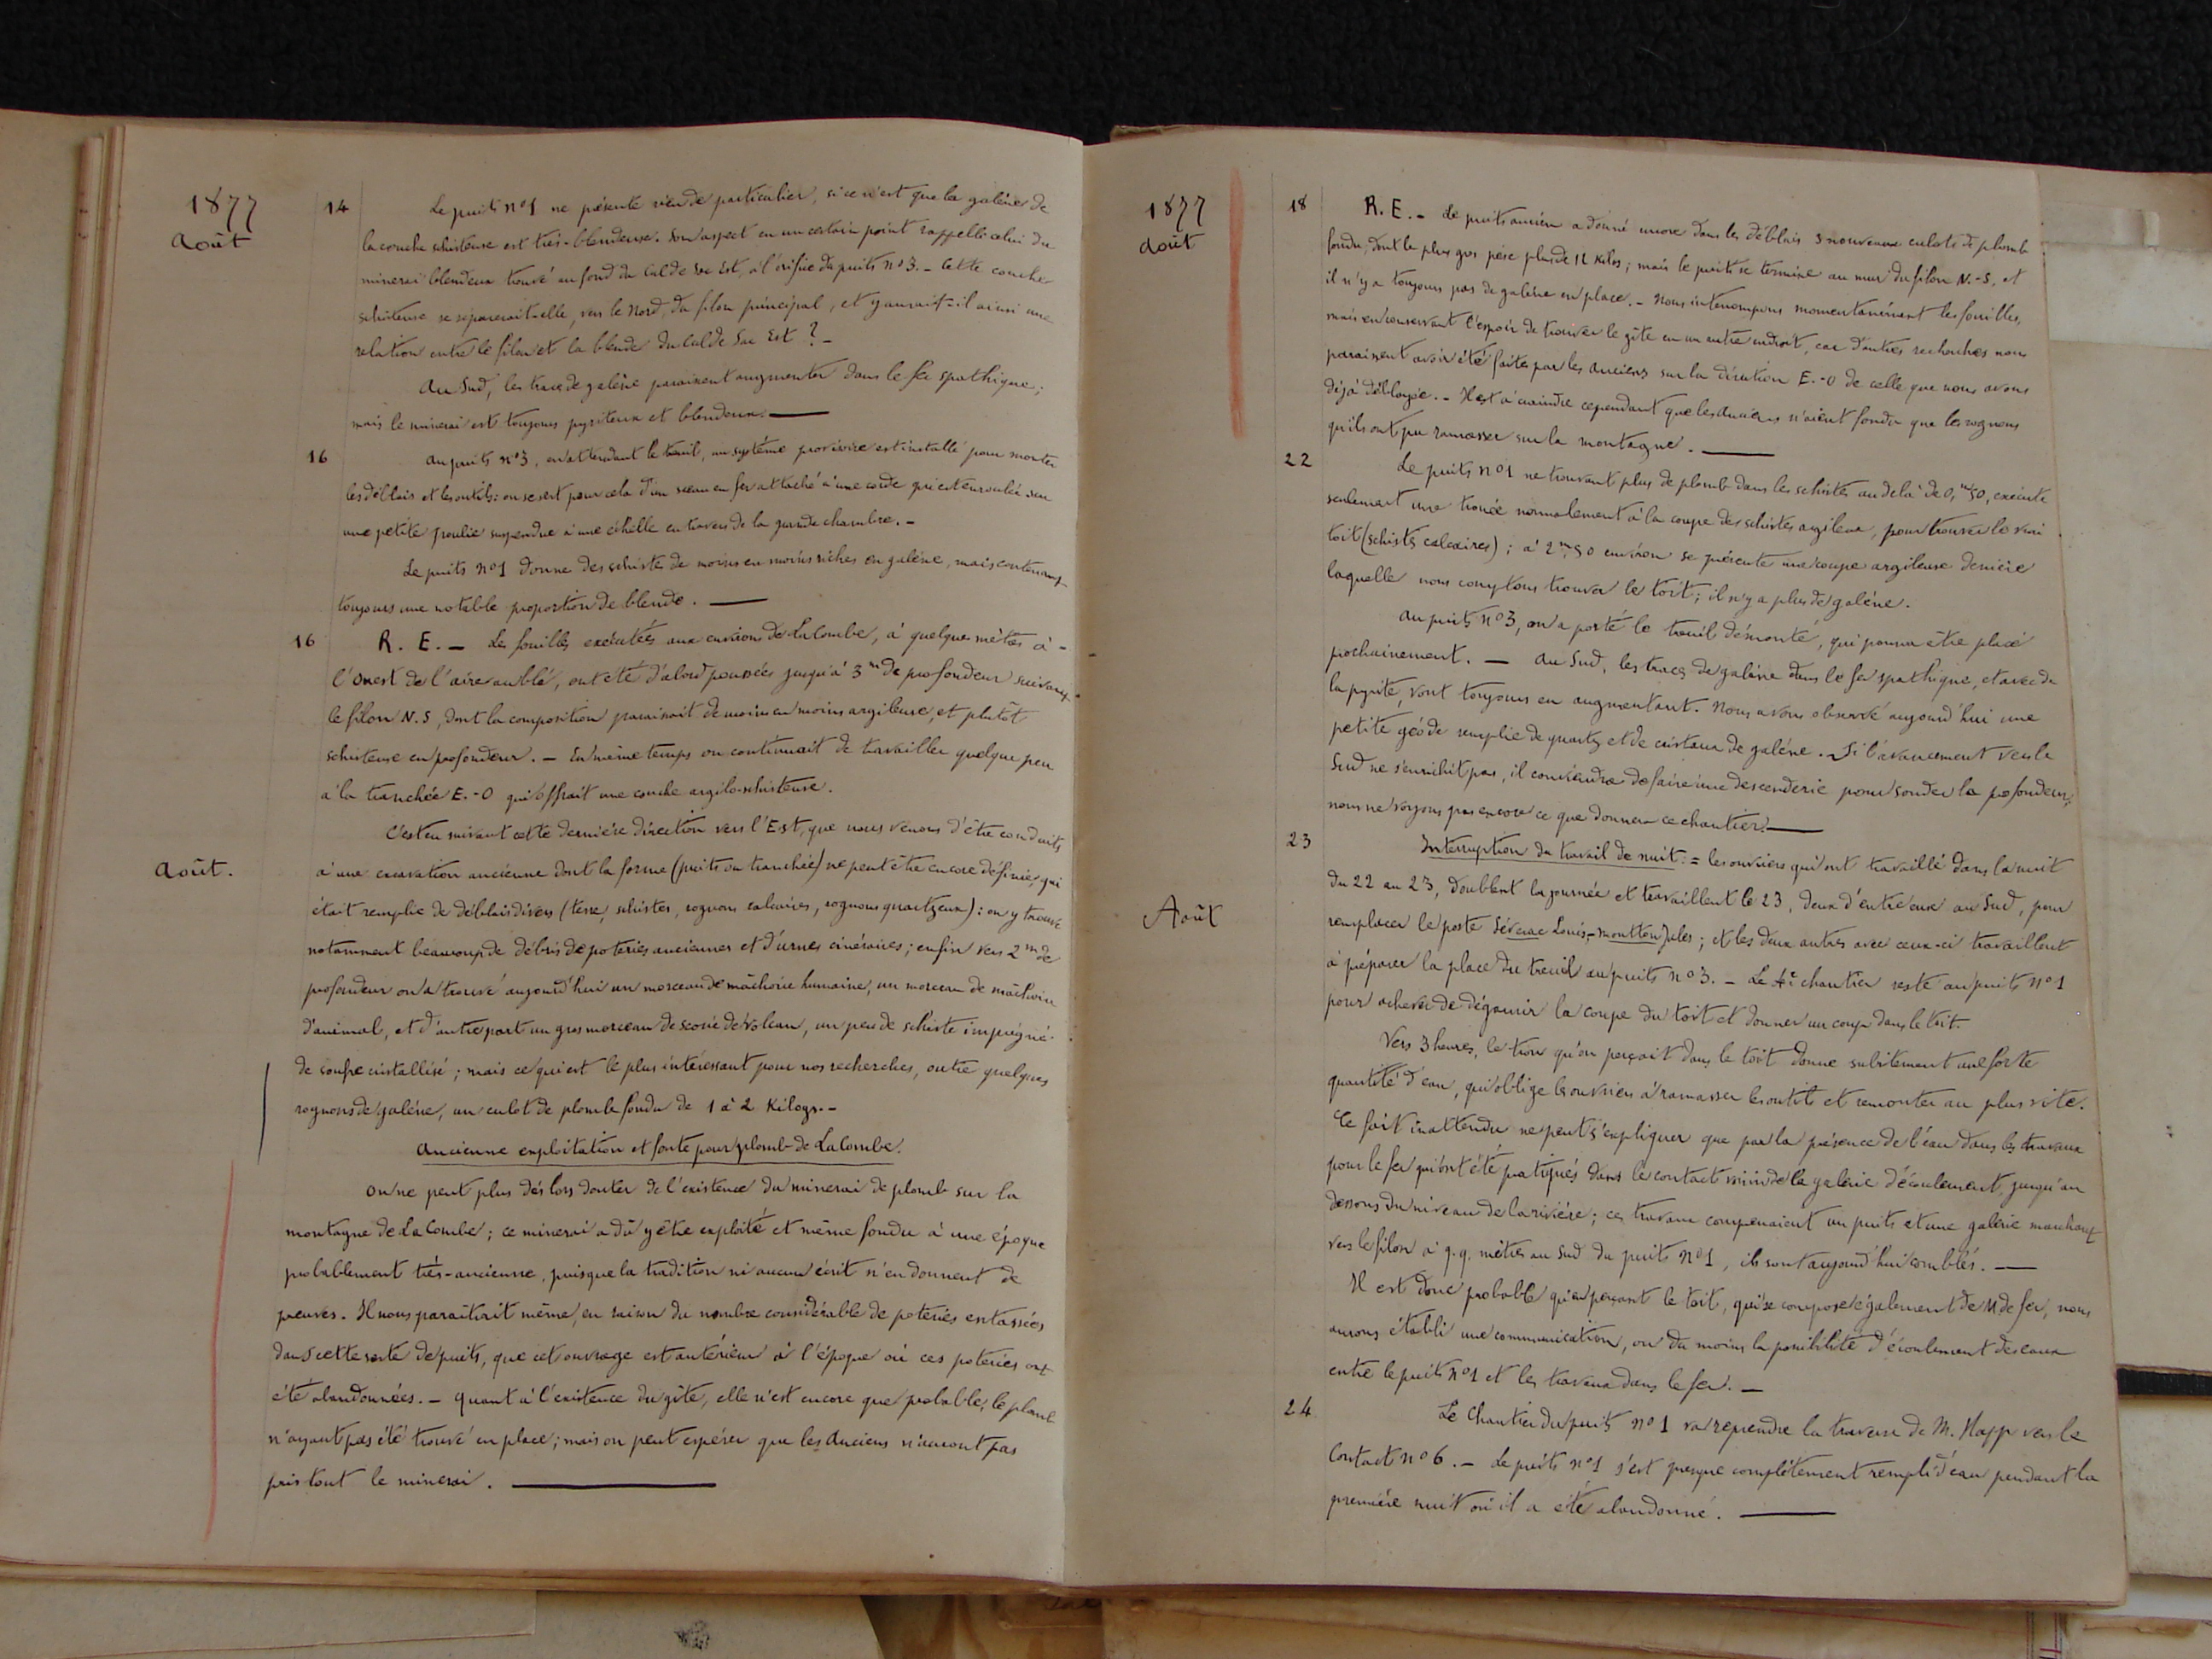 1877
Août
14
Le puits n°1 ne présente rien de particulier, si ce n'est que la galène de
la couche schisteuse est très-blendeuse. Son aspect en un certain point rappelle celui du
minerai blendeux trouvé au fond du Cul de Sac Est, à l'orifice du puits n°3. - Cette couche
schisteuse se séparerait-elle, vers le Nord, du filon principal, et y aurait-il ainsi une
relation entre le filon et la blende du Cul de Sac Est ? -
Au Sud, les traces de galène paraissent augmenter dans le fer spathique ;
mais le minerai est toujours pyriteux et blendeux. —
16
Au puits n°3, en attendant le treuil, un système provisoire est installé pour monter
les déblais et les outils : on se sert pour cela d'un seau en fer attaché à une corde qui est enroulée sur
une petite poulie suspendue à une échelle en travers de la grande chambre. -
Le puits n°1 donne des schistes de moins en moins riches en galène, mais contenant
toujours une notable proportion de blende. —
16
R. E. - Les fouilles exécutées aux environs de La Combe, à quelques mètres à -
l'Ouest de l'aire au blé, ont été d'abord poussées jusqu'à 3m de profondeur suivant
le filon N. S, dont la composition paraissait de moins en moins argileuse, et plutôt
schisteuse en profondeur. - En même temps on continuait de travailler quelque peu
à la tranchée E. - O qui offrait une couche argilo-schisteuse.
C'est en suivant cette dernière direction vers l'Est, que nous venons d'être conduits
Août.
à une excavation ancienne dont la forme (puits ou tranchée) ne peut être encore définie, qui
était remplie de déblais divers (terre, schistes, rognons calcaires, rognons quartzeux) : on y trouve
notamment beaucoup de débris de poteries anciennes et d'urnes cinéraires ; enfin vers 2m de
profondeur on a trouvé aujourd'hui un morceau de mâchoire humaine, un morceau de mâchoire
d'animal, et d'autre part un gros morceau de scorie de Volcan, un peu de schiste imprégné
de soufre cristallisé ; mais ce qui est le plus intéressant pour nos recherches, outre quelques
rognons de galène, un culot de plomb fondu de 1 à 2 Kilogs. -
Ancienne exploitation et fonte pour plomb de La Combe.
On ne peut plus dès lors douter de l'existence du minerai de plomb sur la
montagne de La Combe ; ce minerai a dû y être exploité et même fondu à une époque
probablement très-ancienne, puisque la tradition ni aucun écrit n'en donnent de
preuves. Il nous paraîtrait même, en raison du nombre considérable de poteries entassées
dans cette sorte de puits, que cet ouvrage est antérieur à l'époque où ces poteries ont
été abandonnées. - Quant à l'existence du gîte, elle n'est encore que probable, le plomb
n'ayant pas été trouvé en place ; mais on peut espérer que les Anciens n'auront pas
pris tout le minerai. —
1877
Août
18
R. E. - Le puits ancien a donné encore dans les déblais 3 nouveaux culots de plomb
fondu, dont le plus gros pèse plus de 12 Kilos ; mais le puits se termine au mur du filon N.-S, et
il n'y a toujours pas de galène en place. - Nous interrompons momentanément les fouilles,
mais en conservant l'espoir de trouver le gîte en un autre endroit, car d'autres recherches nous
paraissent avoir été faites par les Anciens sur la direction E. - O de celle que nous avons
déjà déblayée. - Il est à craindre cependant que les Anciens n'aient fondu que les rognons
qu'ils ont pu ramasser sur la montagne. —
22
Le puits n°1 ne trouvant plus de plomb dans les schistes au delà de 0,m50, exécute
seulement une trouée normalement à la coupe des schistes argileux, pour trouver le vrai
toit (schistes calcaires) ; à 2m,50 environ se présente une coupe argileuse derrière
laquelle nous comptons trouver le toit ; il n'y a plus de galène.
Au puits n°3, on a porté le treuil démonté, qui pourra être placé
prochainement. — Au Sud, les traces de galène dans le fer spathique, et avec de
la pyrite, vont toujours en augmentant. Nous avons observé aujourd'hui une
petite géode remplie de quartz et de cristaux de galène. - Si l'avancement vers le
Sud ne s'enrichit pas, il conviendra de faire une descenderie pour sonder la profondeur,
nous ne voyons pas encore ce que donnera ce chantier. —
23
Interruption du travail de nuit : = les ouvriers qui ont travaillé dans la nuit
du 22 au 23, doublent la journée et travaillent le 23, deux d'entre eux au Sud, pour
Août
remplacer le poste Séverac Louis, - Moutton Jules ; et les deux autres avec ceux-ci travaillent
à préparer la place du treuil au puits n°3. - Le chantier reste au puits n°1
pour achever de dégarnir la coupe du toit et donner un coup dans le toit.
Vers 3 heures, le trou qu'on perçait dans le toit donne subitement une forte
quantité d'eau, qui oblige les ouvriers à ramasser les outils et remonter au plus vite.
Ce fait inattendu ne peut s'expliquer que par la présence de l'eau dans les travaux
pour le fer qui ont été pratiqués dans le contact voisin de la galerie d'écoulement, jusqu'au
dessous du niveau de la rivière ; ces travaux comprenaient un puits et une galerie marchant
vers le filon à q.q. mètres au Sud du puits n°1, ils sont aujourd'hui comblés. —
Il est donc probable qu'en perçant le toit, qui se compose également de M de fer, nous
aurons établi une communication, ou du moins la possibilité d'écoulement des eaux
entre le puits n°1 et les travaux dans le fer. -
24
Le Chantier du puits n°1 va reprendre la traverse de M. Happ vers le
Contact n°6. - Le puits n°1 s'est presque complètement rempli d'eau pendant la
première nuit où il a été abandonné. —